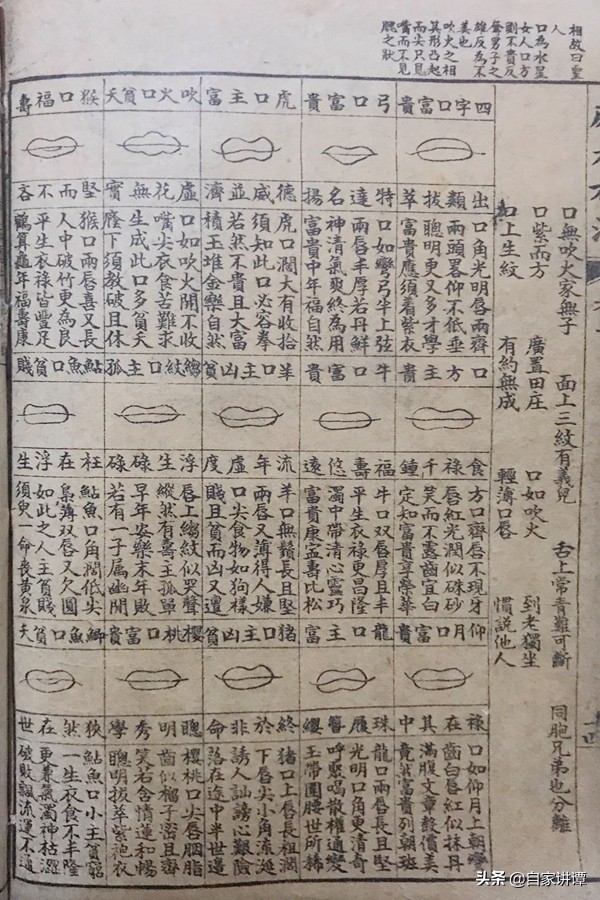 相故曰聖人
口為水星
女人口方
則不貴反
聲男子之
雄反為不
美也
吹火之相
其形凸起
而尖只見
嘴而不見
腮之狀
口無吹火家無子 面上三紋有義兒 舌上常青難可斷 同胞兄弟也分離
口紫而方 廣置田庄 口如吹火 到老獨坐
口上生紋 有約無成 輕薄口唇 慣說他人
四字口富貴
出類拔萃
口角光明唇兩齊
兩頭畧仰不低垂
聰明更又多才學
富貴應須着紫衣
弓口富貴
特達名揚
口如彎弓半上弦
兩唇丰厚若丹鮮
神清氣爽終為用
富貴中年福自然
虎口主富
德威並濟
虎口濶大有收拾
須知此口必容拳
若然不貴且大富
積玉堆金樂自然
吹火口貧夭
虛花無實
口如吹火開不收
嘴尖衣食苦難求
生成此口多貧夭
廕下須教破且休
猴口福壽
堅而不吝
猴口兩唇喜又長
人中破竹更為良
平生衣祿皆豐足
鶴算龜年福壽康
方口主貴
食祿千鍾
方口齊唇不現牙
唇紅光潤似硃砂
笑而不露齒宜白
定知富貴享榮華
牛口富貴
福壽悠遠
牛口双唇厚且丰
平生衣祿更昌隆
濁中帶清心靈巧
富貴康寧壽比松
羊口主凶貧
流年虛度
羊口無鬚長且堅
兩唇又薄得人嫌
口尖食物如狗樣
賤且貧而凶又邅
縐紋口主孤
浮生碌碌
唇上縐紋似哭聲
縱然有壽主孤單
早年安樂末年敗
若有一子属幽關
鮎魚口貧賤
枉在浮生
鮎魚口角濶低尖
梟薄双唇又欠圓
如此之人主貧賤
須臾一命喪黃泉
仰月口富貴
祿在其中
口如仰月上朝彎
齒白唇紅似抹丹
滿腹文章聲價美
竟然富貴列朝班
龍口主富
珠履簪纓
龍口兩唇長且堅
光明口角更清奇
呼聚喝散權通變
玉帶圍腰世所稀
猪口主凶貧
終於非命
猪口上唇長粗濶
下唇尖小角流涎
誘人訕謗心艱險
落在途中半世邅
櫻桃口富貴
聰明秀學
櫻桃口尖唇胭脂
齒似榴子密且齊
笑若含情蓮和暢
聰明拔萃紫袍衣
鯽魚口貧夭
狹然在世
鮎魚口小主貧窮
一生衣食不丰隆
更兼氣濁神枯澀
破敗飄流運不通
头条 @自家讲谭